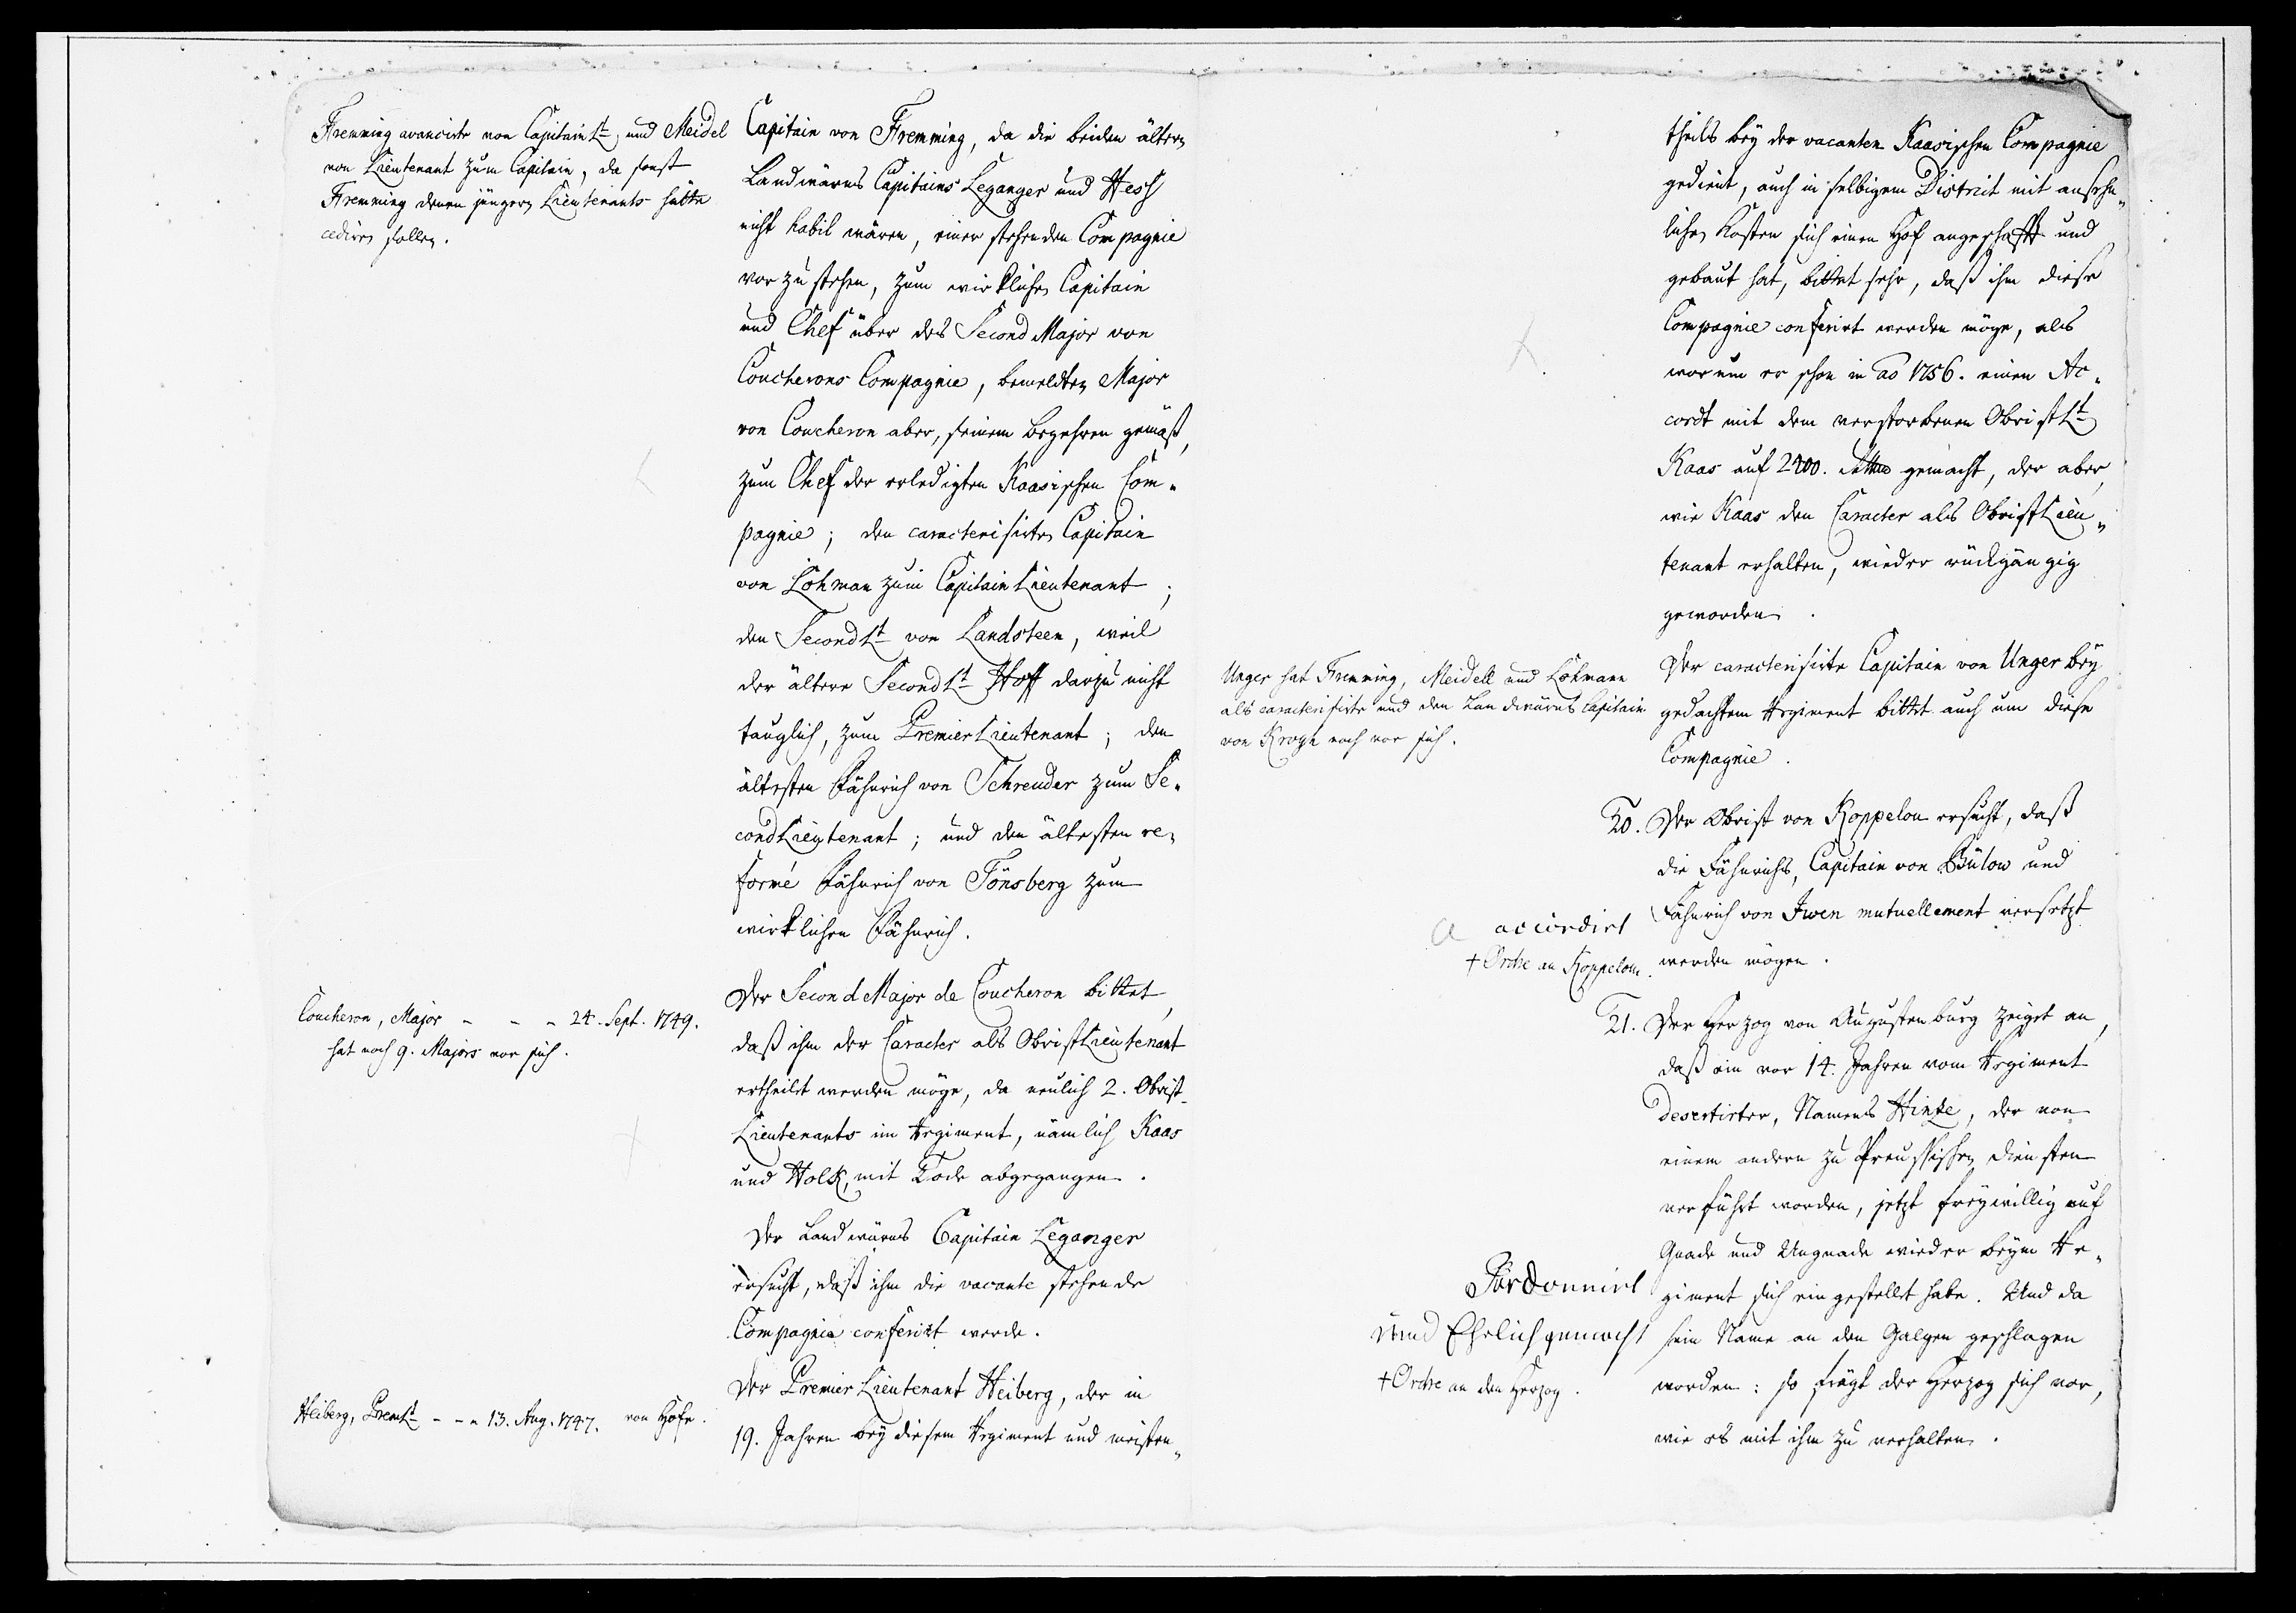 Fremming avancirte von CapitainLt und Meidel
von Lieutenant zum Capitain, da sonst
Fremming denen jüngern Lieutenants hätte
cediren sollen.
Capitain von Fremming, da die beiden ältern
Landwärns Capitains Leganger und Hesß
nicht habil wären, einer stehenden Compagnie
vorzustehen, zum wirklichen Capitain
und Chef über des Second Major von
Coucherons Compagnie, bemeldten Major
von Coucheron aber, seinem Begehren gemäß,
zum Chef der erledigten Kaasischen Com„
pagnie; den caracterisirten Capitain
von Lohman zum CapitainLieutenant;
den SecondLt von Landsteen, weil
der ältere SecondLt Hoff darzu nicht
tauglich, zum PremierLieutenant; den
ältesten Fähnrich von Schreuder zum Se„
condLieutenant; und den ältesten re„
formé Fähnrich von Tönsberg zum
wirklichen Fähnrich.
Coucheron, Major - - - 24. Sept. 1749.
hat noch 9. Majors vor sich.
Der Second Major de Coucheron bittet,
daß ihm der Caracter als ObristLieutenant
ertheilet werden möge, da neulich 2. Obrist-
Lieutenants im Regiment, nämlich Kaas
und Holk, mit Tode abgegangen.
Der Landwärns Capitain Leganger
ersucht, daß ihm die vacante stehende
Compagnie conferirt werde.
Heiberg, PremLt - - - 13. Aug. 1747. von Höfe.
Der Premier Lieutenant Heiberg, der in
19. Jahren bey diesem Regiment und meisten„
theils bey der vacanten Kaasischen Compagnie
gedient, auch in selbigem District mit ansehn„
lichen Kosten sich einen Hof angeschafft und
gebaut hat, bittet sehr, daß ihm diese
Compagnie conferirt werden möge, als
worum er schon in ao 1756. einen Ac„
cordt mit dem verstorbenen ObristLt
Kaas auf 2400. gemacht, der aber,
wie Kaas den Caracter als ObristLieu„
tenant erhalten, wieder rückgängig
geworden.
Unger hat Fremming, Meidell und Lohmann
als caracterisirte und den Landwärns Capitain
von Krogh noch vor sich.
Der caracterisirte Capitain von Unger bey
gedachtem Regiment bittet auch um diese
Compagnie.
20. Der Obrist von Koppelou ersucht, daß
die Fähnrichs, Capitain von Bülow und
Fähnrich von Iwen mutuellement versetzt
werden mögen.
a accordirt
+ Ordre an Koppelou.
21. Der Herzog von Augustenburg zeiget an,
daß ein vor 14. Jahren vom Regiment
Desertirter, Namens Hinke, der von
einem andern zu Preussischen Diensten
verführt worden, jetzt freywillig auf
Gnade und Ungnade wieder beym Re„
giment sich eingestellet habe. Und da
sein Name an den Galgen geschlagen
worden: so frägt der Herzog sich vor,
wie es mit ihm zu verhalten.
Pardonnirt
und Ehrlich gemacht
+ Ordre an den Herzog.